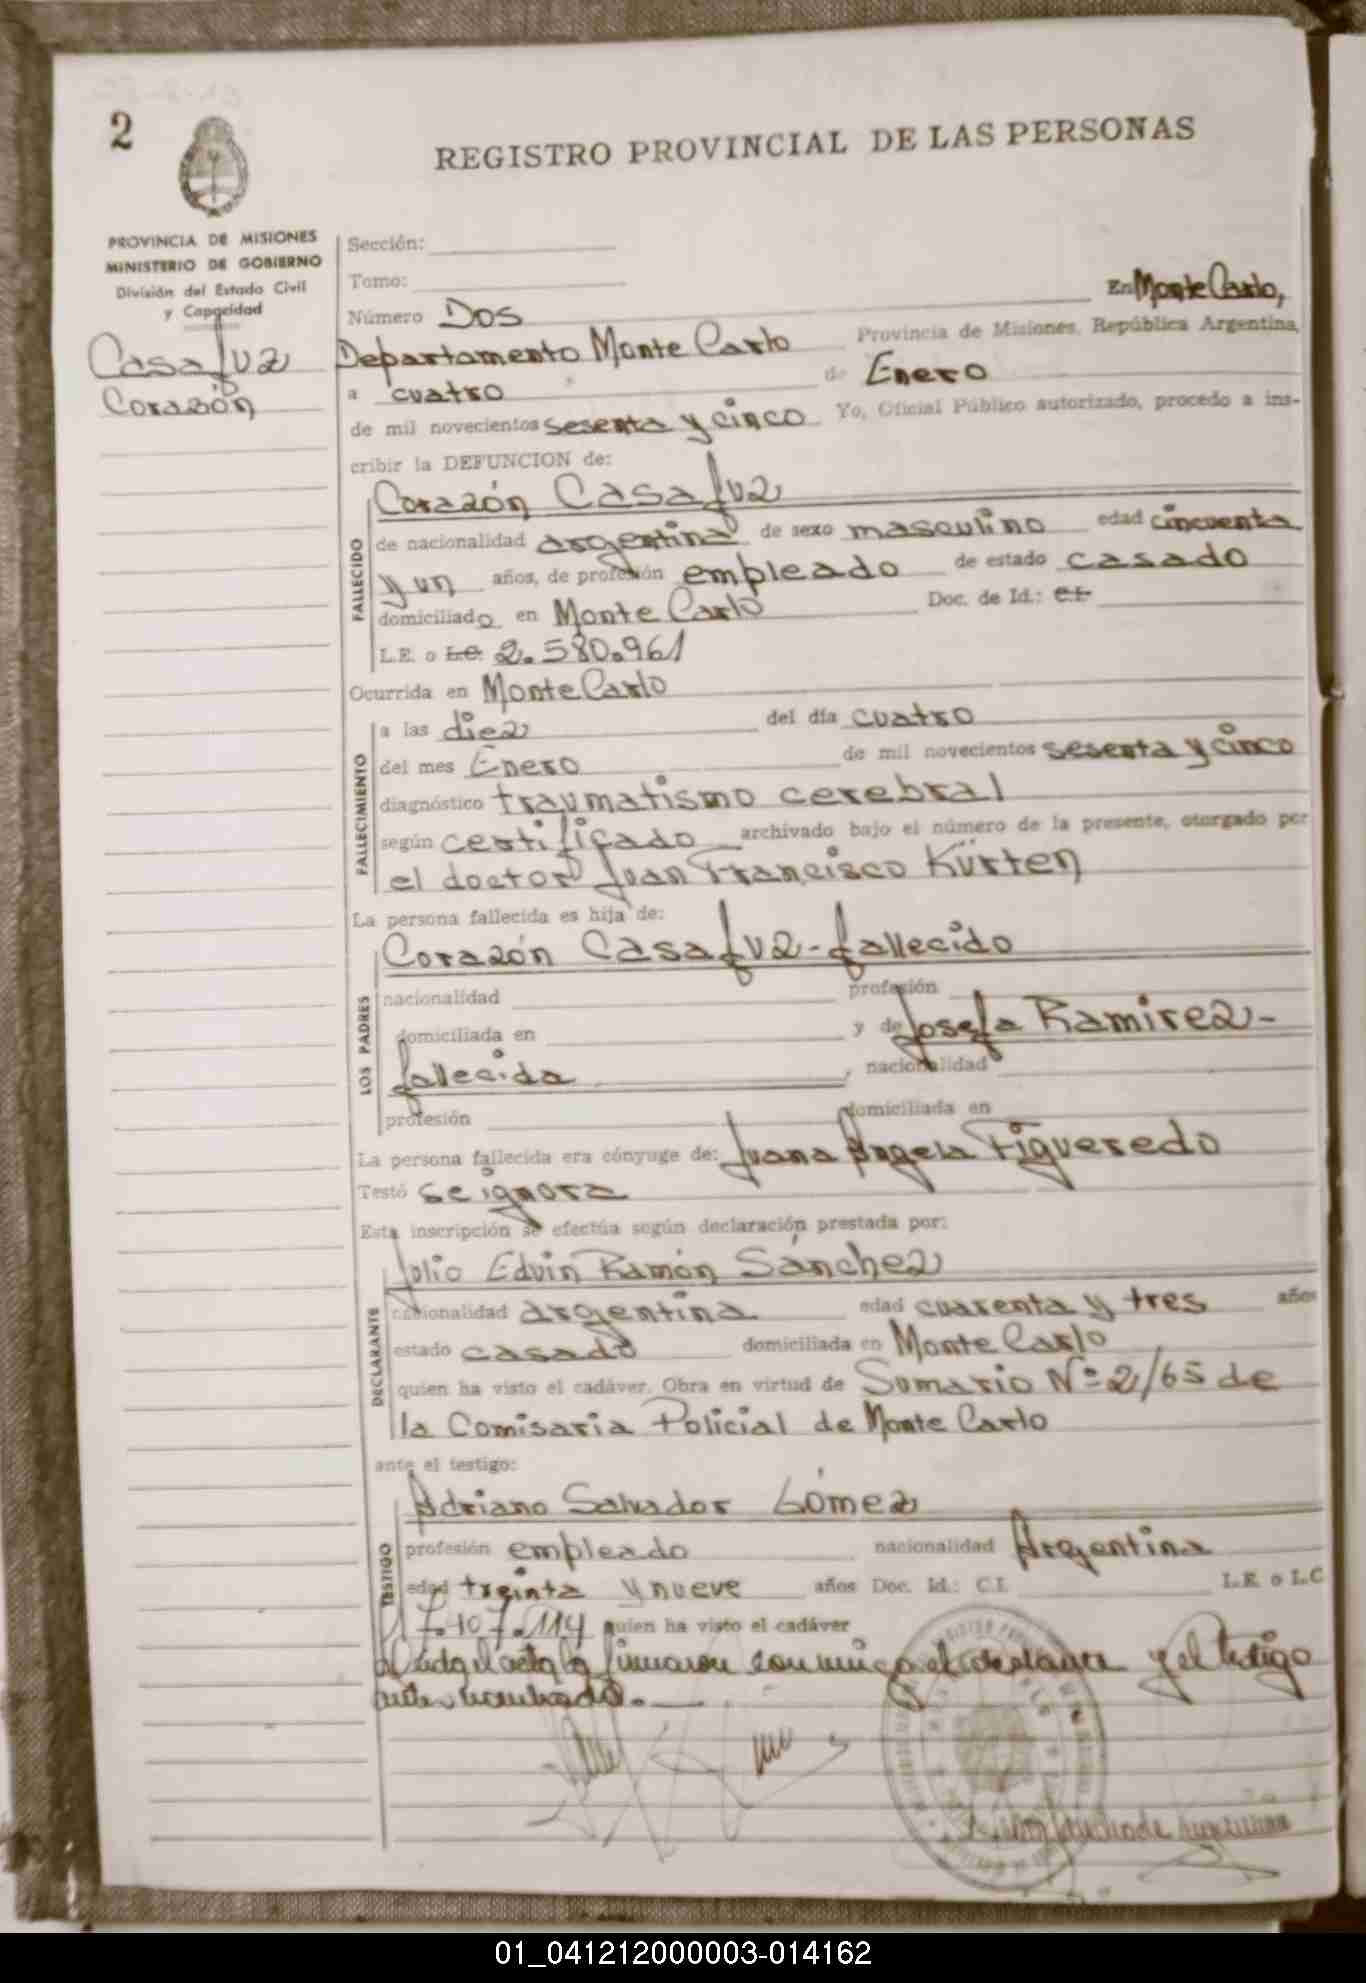 2
REGISTRO PROVINCIAL DE LAS PERSONAS
PROVINCIA DE MISIONES
MINISTERIO DE GOBIERNO
División del Estado Civil
y Capacidad
Casafuz
Corazón
Sección:
Tomo:
Número Dos En Monte Carlo,
Departamento Monte Carlo Provincia de Misiones, República Argentina,
a cuatro de Enero
de mil novecientos sesenta y cinco Yo, Oficial Público autorizado, procedo a ins-
cribir la DEFUNCION de:
FALLECIDO
Corazón Casafuz
de nacionalidad argentina de sexo masculino edad cincuenta
y un años, de profesión empleado de estado casado
domiciliado en Monte Carlo Doc. de Id.:
L.E. o 2.580.961
Ocurrida en Monte Carlo
FALLECIMIENTO
a las diez del día cuatro
del mes Enero de mil novecientos sesenta y cinco
diagnóstico traumatismo cerebral
según certificado archivado bajo el número de la presente, otorgado por
el doctor Juan Francisco Kürten
La persona fallecida es hija de:
LOS PADRES
Corazón Casafuz-fallecido
nacionalidad profesión
domiciliada en y de Josefa Ramirez-
fallecida, nacionalidad
profesión domiciliada en
La persona fallecida era cónyuge de: Juana Angela Figueredo
Testó se ignora
Esta inscripción se efectúa según declaración prestada por:
DECLARANTE
Julio Edvin Ramón Sánchez
nacionalidad argentina edad cuarenta y tres años
estado casado domiciliada en Monte Carlo
quien ha visto el cadáver. Obra en virtud de Sumario Nº 2/65 de
la Comisaria Policial de Monte Carlo
ante el testigo:
TESTIGO
Adriano Salvador Gómez
profesión empleado nacionalidad Argentina
edad treinta y nueve años Doc. Id.: C.I. L.E. o L.C
7.107.114 quien ha visto el cadáver
Leída el acta la firmaron conmigo el declarante y el testigo
antes nombrado.
01_041212000003-014162